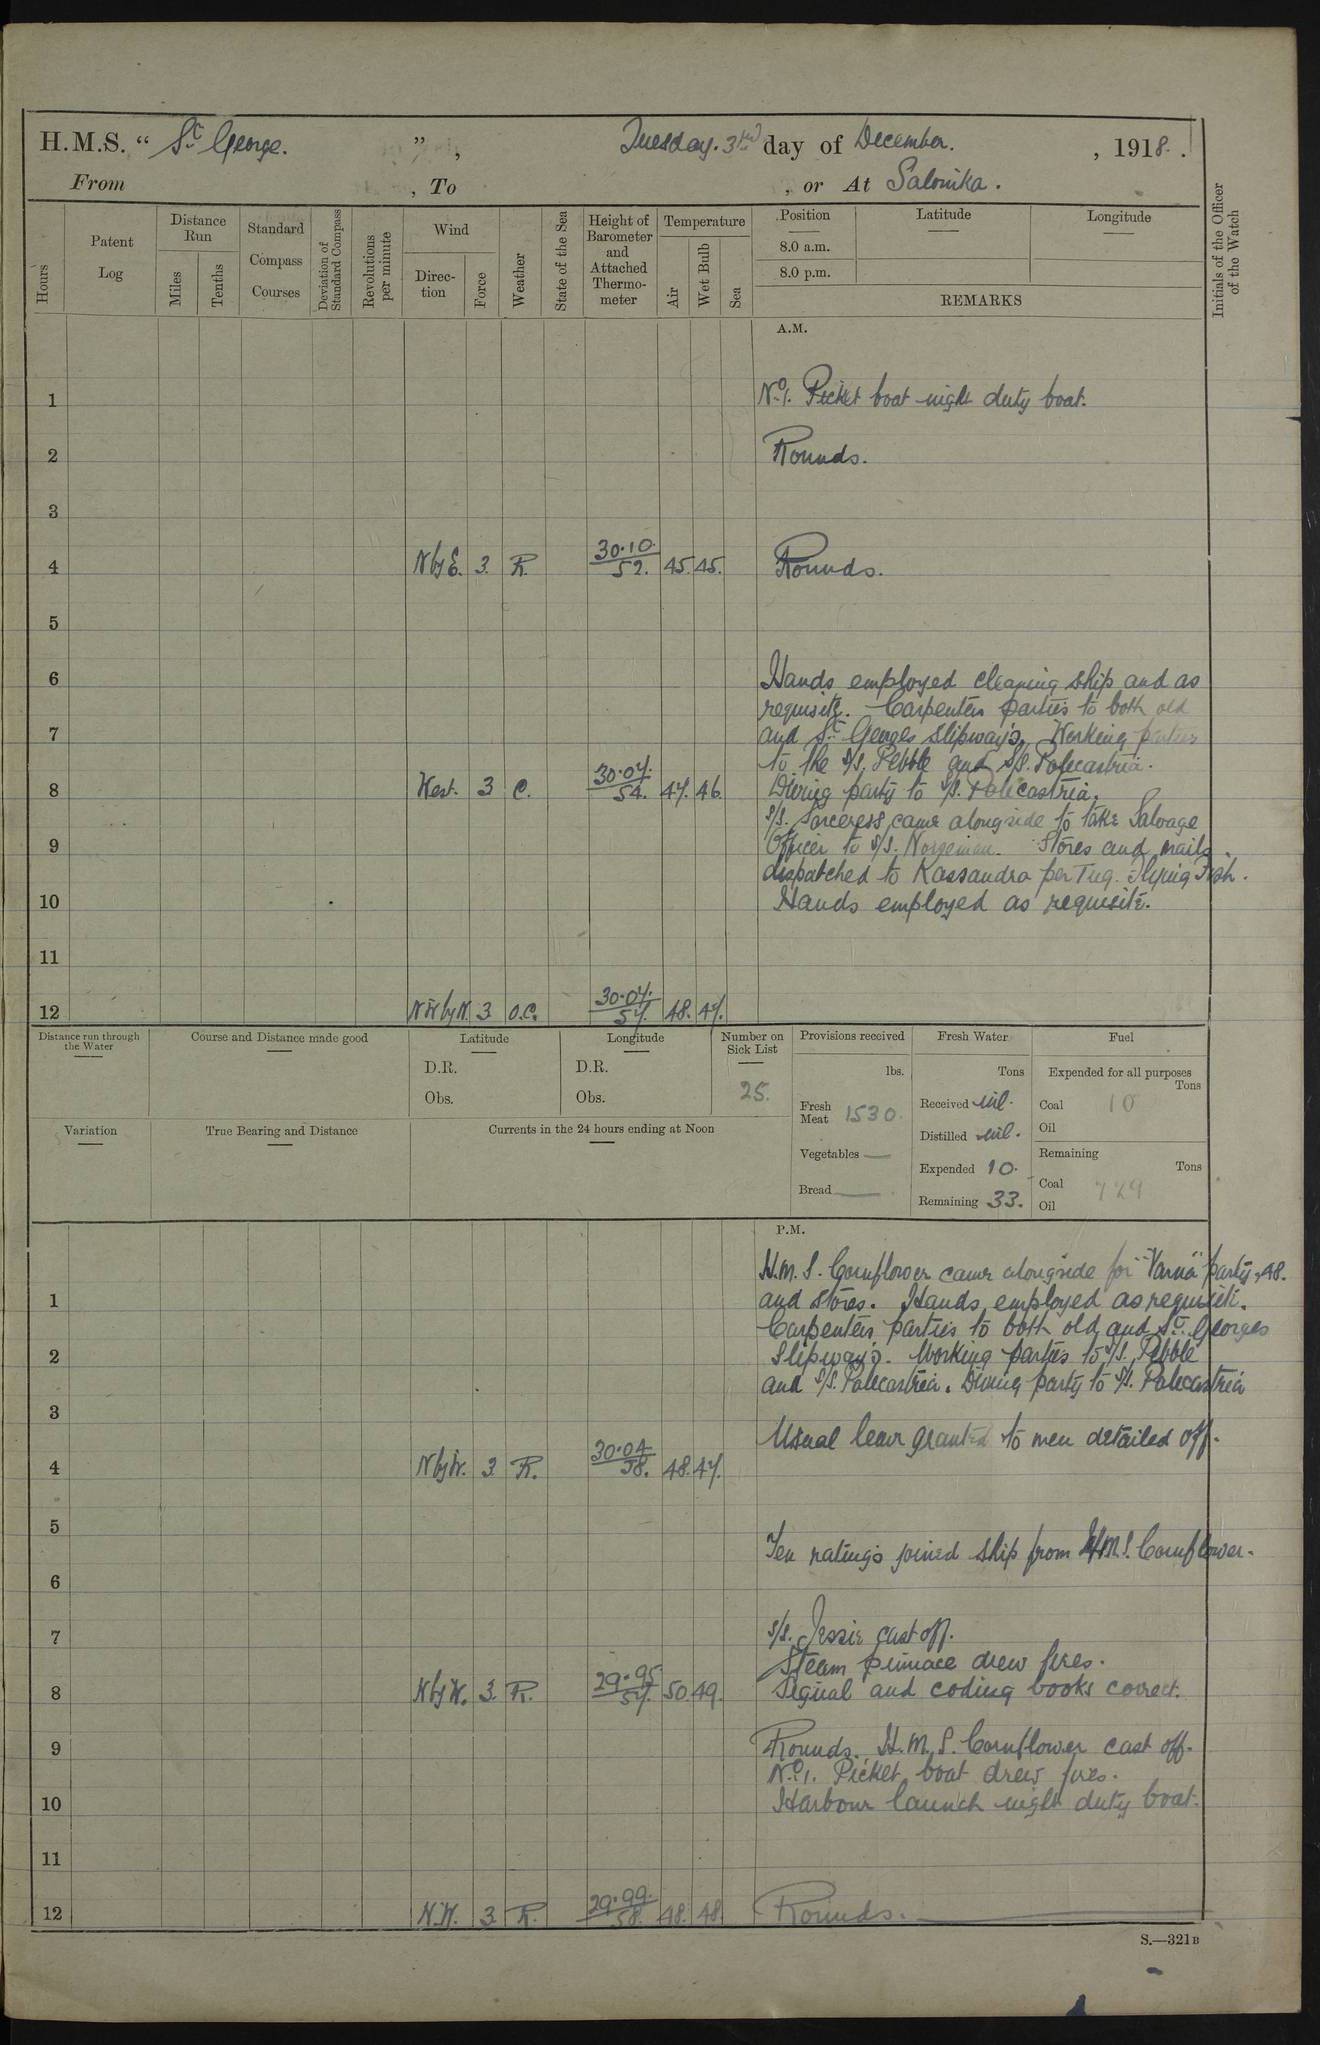 H.M.S. “ St. George. ” , Tuesday. 3rd day of December. , 1918.
From , To , or At Salonika.
Hours
Patent Log
Distance Run
Miles
Tenths
Standard Compass Courses
Deviation of Standard Compass
Revolutions per minute
Wind
Direc-tion
Force
Weather
State of the Sea
Height of Barometer and Attached Thermo-meter
Temperature
Air
Wet Bulb
Sea
Position Latitude Longitude
8.0 a.m.
8.0 p.m.
REMARKS
Initials of the Officer of the Watch
A.M.
1 No. 1. Picket boat night duty boat.
2 Rounds.
3
4 N by E. 3. R. 30.10. 52. 45. 45. Rounds.
5
6 Hands employed cleaning ship and as
requisite. Carpenters parties to both old
7 and St. Georges slipway's. Working parties
to the S/S. Pebble and S/S. Palecastria.
8 West. 3 C. 30.07. 54. 47. 46. Diving party to S/S. Palecastria.
S/S. Sorceress came alongside to take Salvage
9 Officer to S/S. Norseman. Stores and mails
dispatched to Kassandra per Tug. Flying Fish.
10 Hands employed as requisite.
11
12 NW by N. 3 O.C. 30.07. 57. 48. 47.
Distance run through the Water
Course and Distance made good
Latitude
D.R.
Obs.
Longitude
D.R.
Obs.
Number on Sick List
25.
Provisions received
lbs.
Fresh Meat 1530.
Vegetables —
Bread —
Fresh Water
Tons
Received nil.
Distilled nil.
Expended 10.
Remaining 33.
Fuel
Expended for all purposes
Tons
Coal 10
Oil
Remaining
Tons
Coal 729
Oil
Variation
True Bearing and Distance
Currents in the 24 hours ending at Noon
P.M.
H.M.S. Cornflower came alongside for "Varna" party, 48.
1 and stores. Hands employed as requisite.
Carpenters parties to both old and St. Georges
2 Slipway's. Working parties to S/S. Pebble
and S/S. Palecastria. Diving party to S/S. Palecastria
3 Usual leave granted to men detailed off.
4 N by W. 3 R. 30.04 58. 48. 47.
5 Ten ratings joined ship from H.M.S. Cornflower.
6
7 S/S. Jessie cast off.
Steam pinnace drew fires.
8 N by W. 3. R. 29.95 57. 50. 49. Signal and coding books correct.
9 Rounds. H.M.S. Cornflower cast off.
No. 1. Picket boat drew fires.
10 Harbour launch night duty boat.
11
12 N.W. 3 R. 29.99. 58. 48. 48 Rounds.
S.—321B